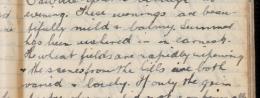 evening. These evenings are beau-
tifully mild & balmy. Summer
has been ushered in in earnest.
The wheat fields are rapidly ripening
& the scenes from the hills are both
varied & lovely. If only the grain